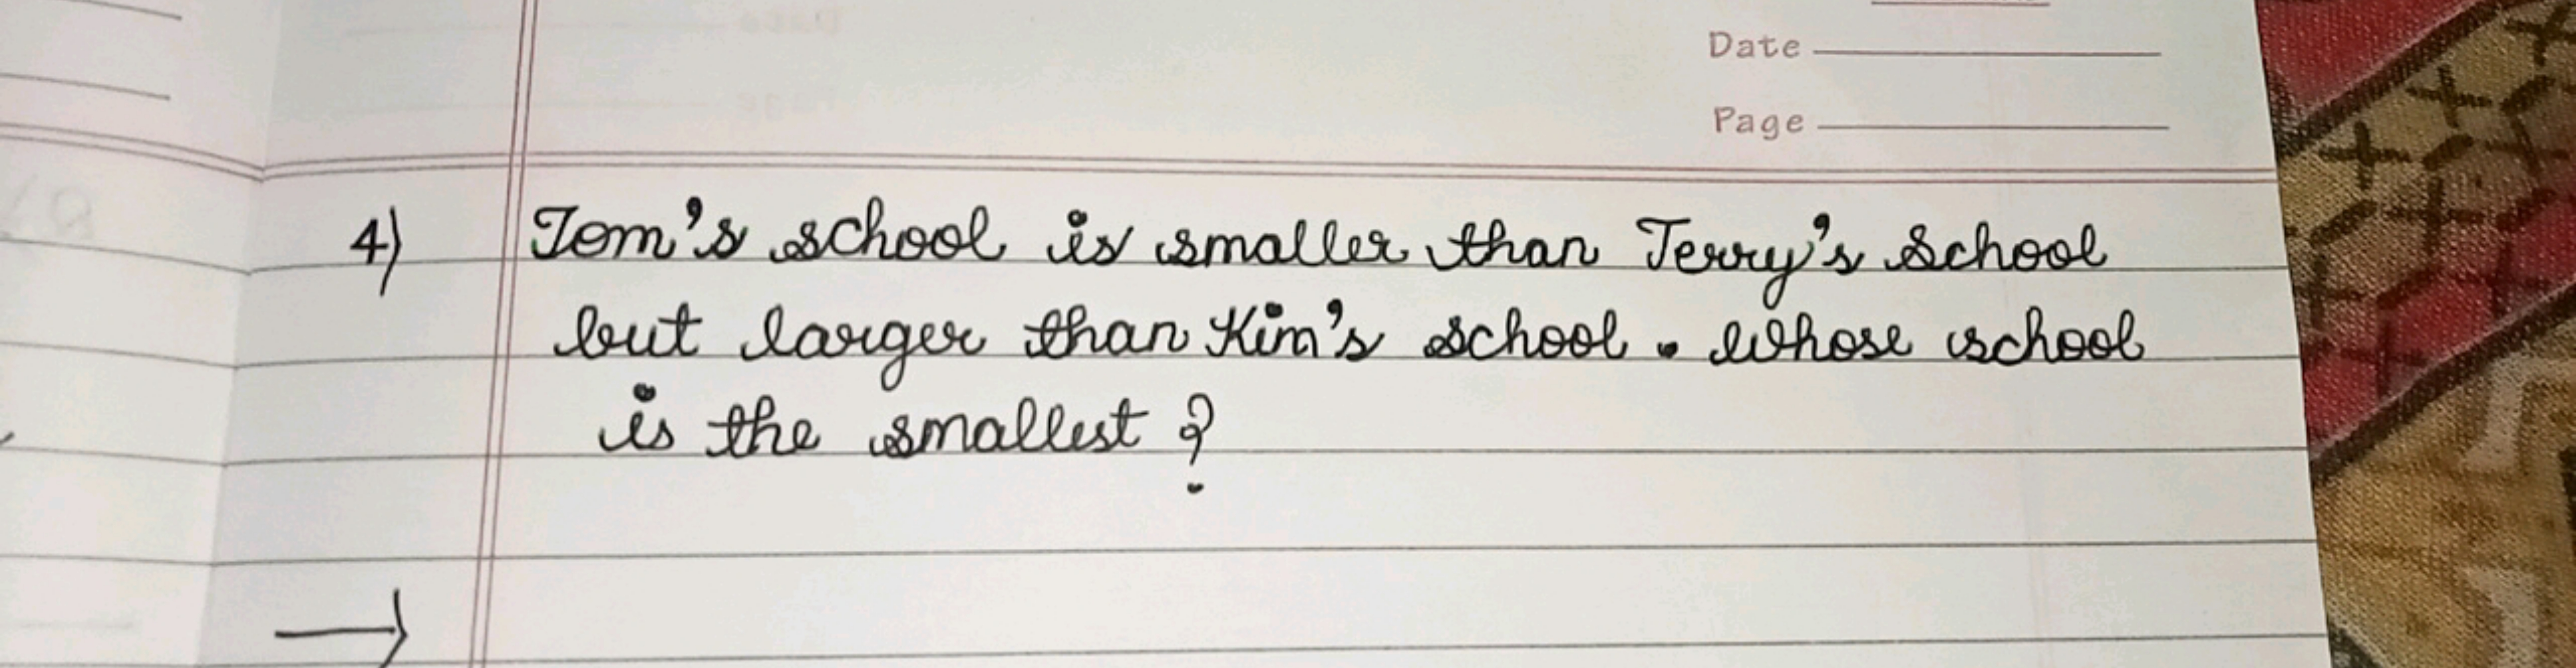 Date
Page
4) Tom's school is smaller than Terry's school
but larger than Kim's school. Whose school
is the smallest?
→